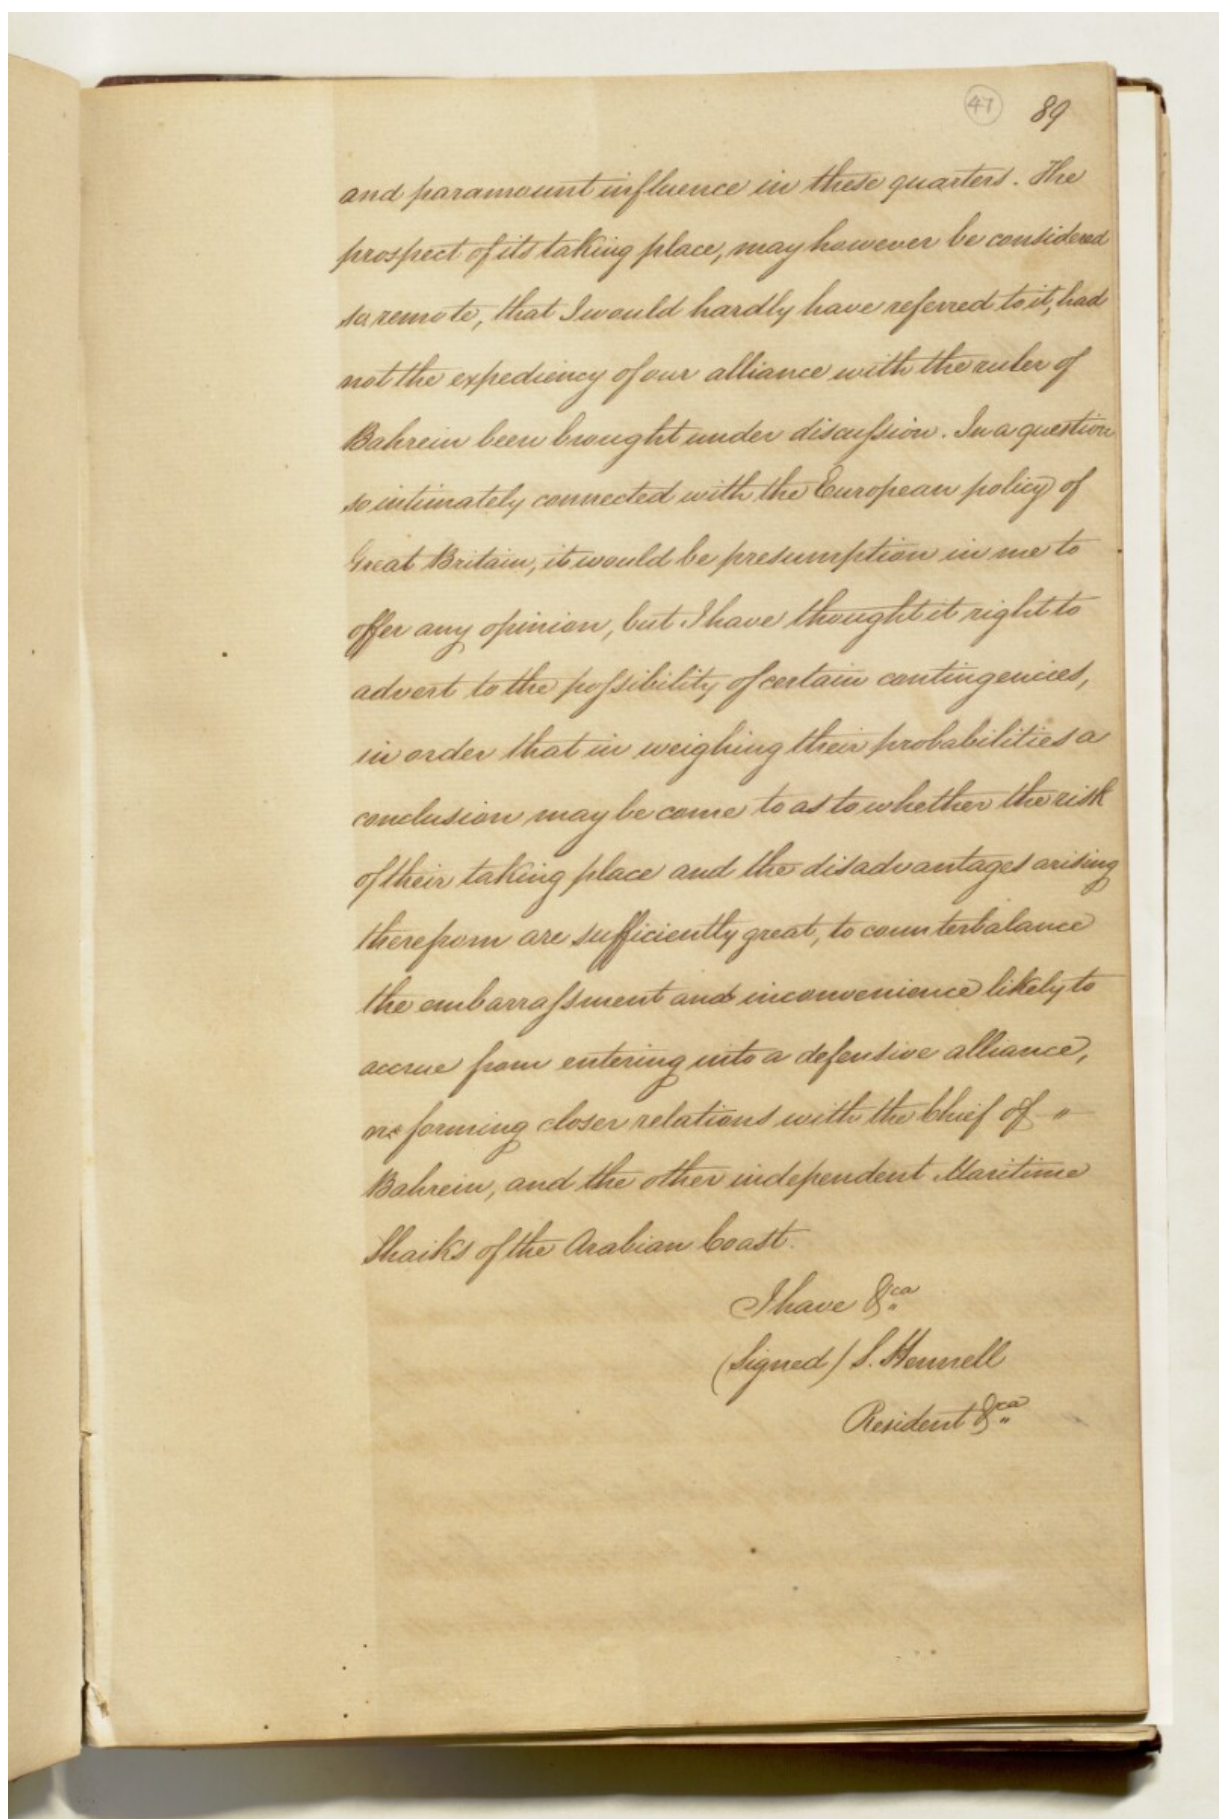 47 89
and paramount influence in these quarters. The
prospect of its taking place, may however be considered
so remote, that I would hardly have referred to it, had
not the expediency of our alliance with the ruler of
Bahrein been brought under discussion. In a question
so intimately connected with the European policy of
Great Britain, it would be presumption in me to
offer any opinion, but I have thought it right to
advert to the possibility of certain contingencies,
in order that in weighing their probabilities a
conclusion may be come to as to whether the risk
of their taking place and the disadvantages arising
therefrom are sufficiently great, to counterbalance
the embarrassment and inconvenience likely to
accrue from entering into a defensive alliance,
forming closer relations with the Chief of "
Bahrein, and the other independent Maritime
Shaiks of the Arabian Coast.
I have &ca
(Signed) S. Hennell
Resident &ca